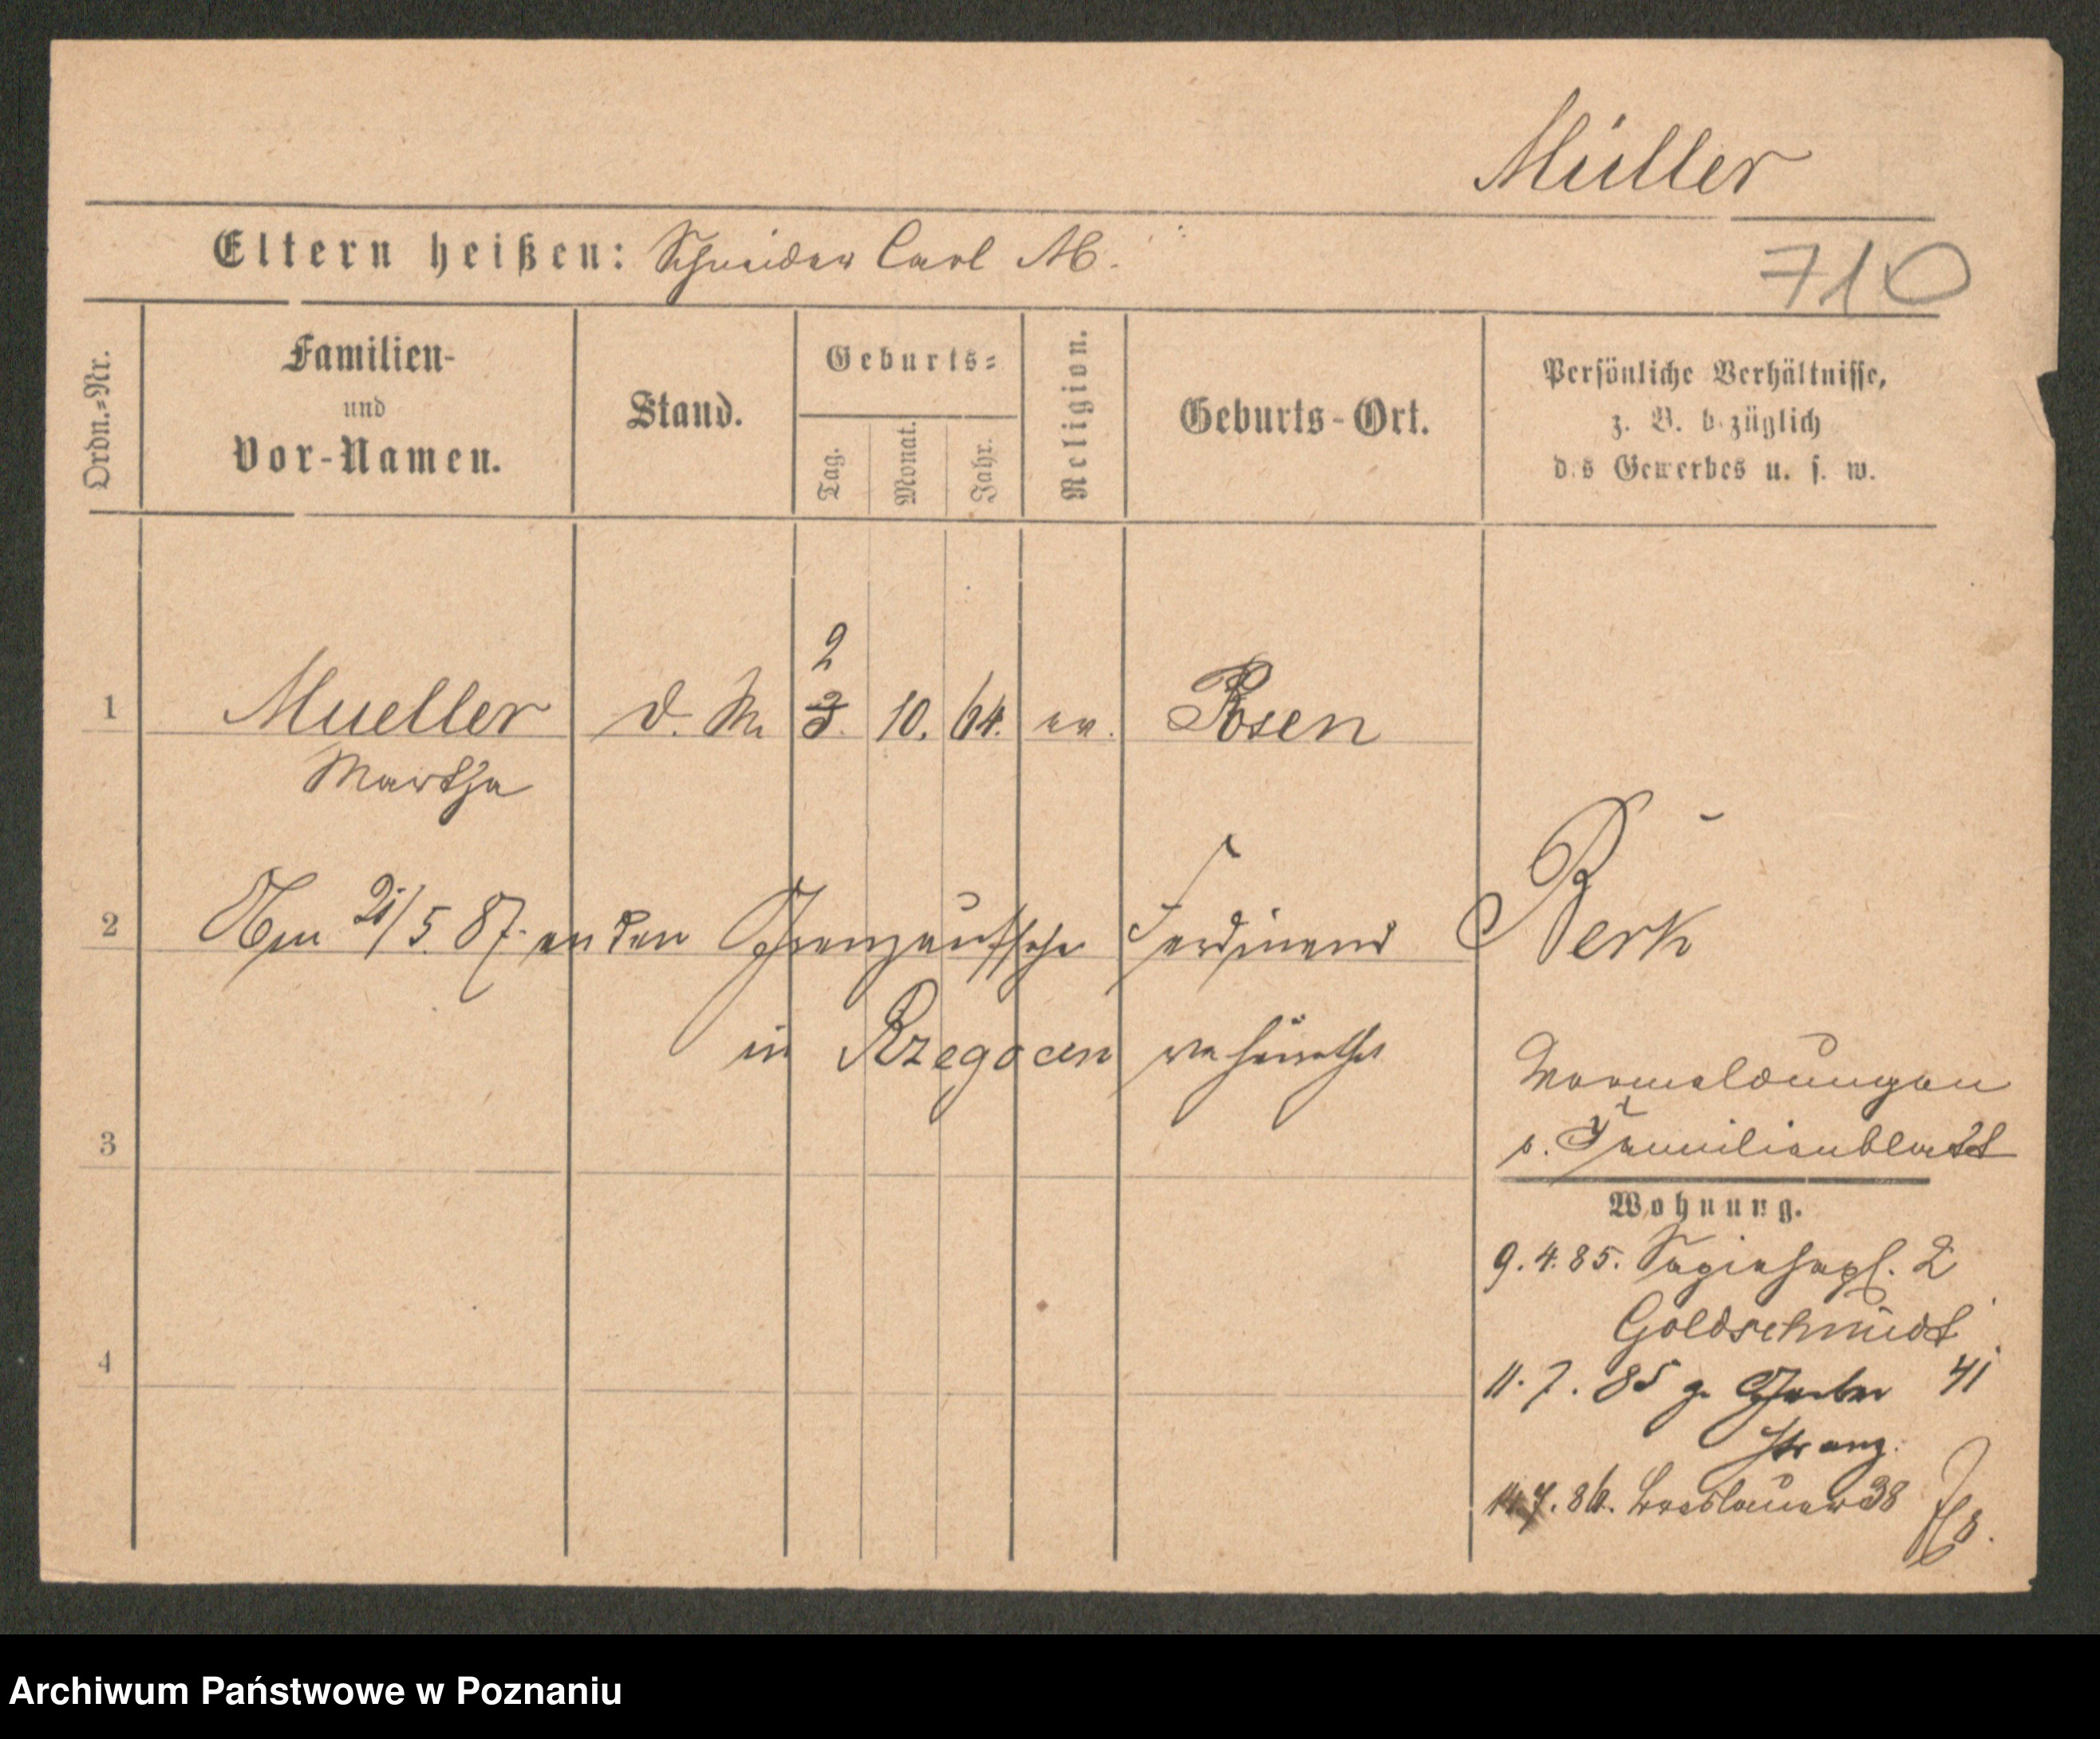 Müller
Eltern heißen: Schneider Carl M.
710
Ordn.-Nr.
Familien-
und
Vor-Namen.
Stand.
Geburts-
Tag.
Monat.
Jahr.
Religion.
Geburts-Ort.
Persönliche Verhältnisse,
z. B. bezüglich
des Gewerbes u. s. w.
2
1 Mueller d. M. 3. 10. 64. ev. Posen
Martha
2 Am 21/5. 87. an den Grenzaufseher Ferdinand Berk
in Rzegocin verheirathet
Vormeldungen
3
s. Familienblatt
Wohnung.
9. 4. 85. Sapiehapl. 2
Goldschmidt
4
11. 7. 85 Gerber 41
14. 7. 86. Breslauer 38
Archiwum Państwowe w Poznaniu